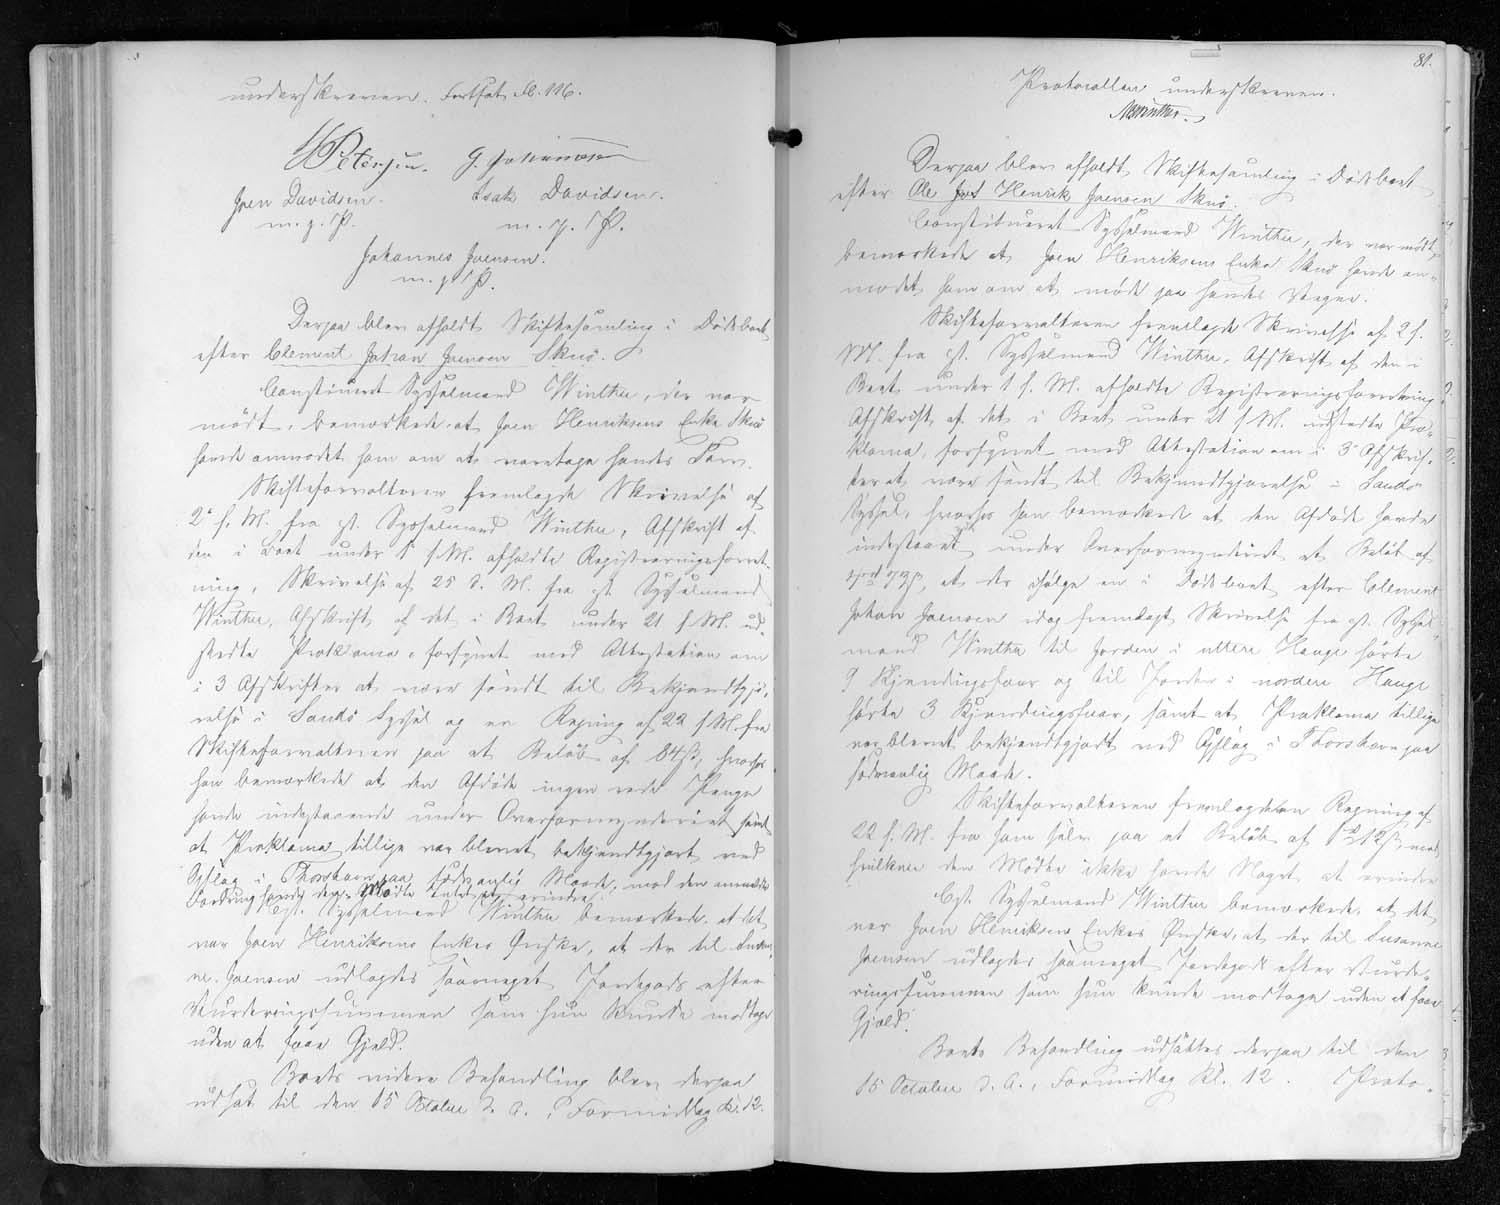 underskreven. Fortsat Fol. 116.
HPetersen. G. Johannesen
Joen Davidsen. Isak Davidsen.
m. g. P. m. g. P.
Johannes Joensen.
m. g. P.
Derpaa blev afholdt Skiftesamling i Dødsboet
efter Clement Johan Joensen Skuø.
Constitueret Sysselmand Winther, der var
mødt, bemærkede, at Joen Henriksens Enke Skuø
havde anmodet ham om at varetage hendes Tarv.
Skifteforvalteren fremlagde Skrivelse af
2 f. M. fra cst. Sysselmand Winther, Afskrift af
den i Boet under 1 f. M. afholdte Registreringsforret-
ning, Skrivelse af 25 d. M. fra cst. Sysselmand
Winther, Afskrift af det i Boet under 21 f. M. ud-
stedte Proklama, forsynet med Attestation om
i 3 Afskrifter at være sendt til Bekjendtgjø-
relse i Sandø Syssel og en Regning af 22 f. M. fra
Skifteforvalteren paa et Beløb af 84 ß, hvorhos
han bemærkede at den Afdøde ingen rede Penge
havde indestaaende under Overformynderiet samt
at Proklama tillige var blevet bekjendtgjort ved
Opslag i Thorshavn paa sædvanlig Maade, mod den anmeldte
Fordring havde den Mødte Intet at erindre.
Cst. Sysselmand Winther bemærkede, at det
var Joen Henriksens Enkes Ønske, at der til Susan-
ne Joensen udlagdes saameget Jordegods efter
Vurderingssummen som hun kunde modtage
uden at faae Gjæld.
Boets videre Behandling blev derpaa
udsat til den 15 October d. A., Formiddag Kl. 12.
81.
Protocollen underskreven.
NWinther.
Derpaa blev afholdt Skiftesamling i Dødsboet
efter Ole Henrik Joensen Skuø.
Constitueret Sysselmand Winther, der var mødt,
bemærkede at Joen Henriksens Enke Skuø havde an-
modet ham om at møde paa hendes Vegne.
Skifteforvalteren fremlagde Skrivelse af 2 f.
M. fra cst. Sysselmand Winther, Afskrift af den i
Boet under 1 f. M. afholdte Registreringsforretning,
Afskrift af det i Boet under 21 f. M. udstedte Pro-
klama, forsynet med Attestation om i 3 Afskrif-
ter at være sendt til Bekjendtgjørelse i Sandø
Syssel, hvorhos han bemærkede at den Afdøde havde
indestaaet under Overformynderiet et Beløb af
73 ß, at der ifølge en i Dødsboet efter Clement
Johan Joensen idag fremlagt Skrivelse fra cst. Syssel-
mand Winther til Jorden i uttere Hauge hørte
9 Kjendingsfaar og til Jorden i nordere Hauge
hørte 3 Kjendingsfaar, samt at Proklama tillige
var blevet bekjendtgjort ved Opslag i Thorshavn paa
sædvanlig Maade.
Skifteforvalteren fremlagde en Regning af
22 f. M. fra ham selv paa et Beløb af 12 ß, mod
hvilken den Mødte ikke havde Noget at erindre
Cst. Sysselmand Winther bemærkede, at det
var Joen Henriksens Enkes Ønske, at der til Susanne
Joensen udlagdes saameget Jordegods efter Vurde-
ringssummen som hun kunde modtage uden at faae
Gjæld.
Boets Behandling udsattes derpaa til den
15 October d. A., Formiddag Kl. 12. Proto-